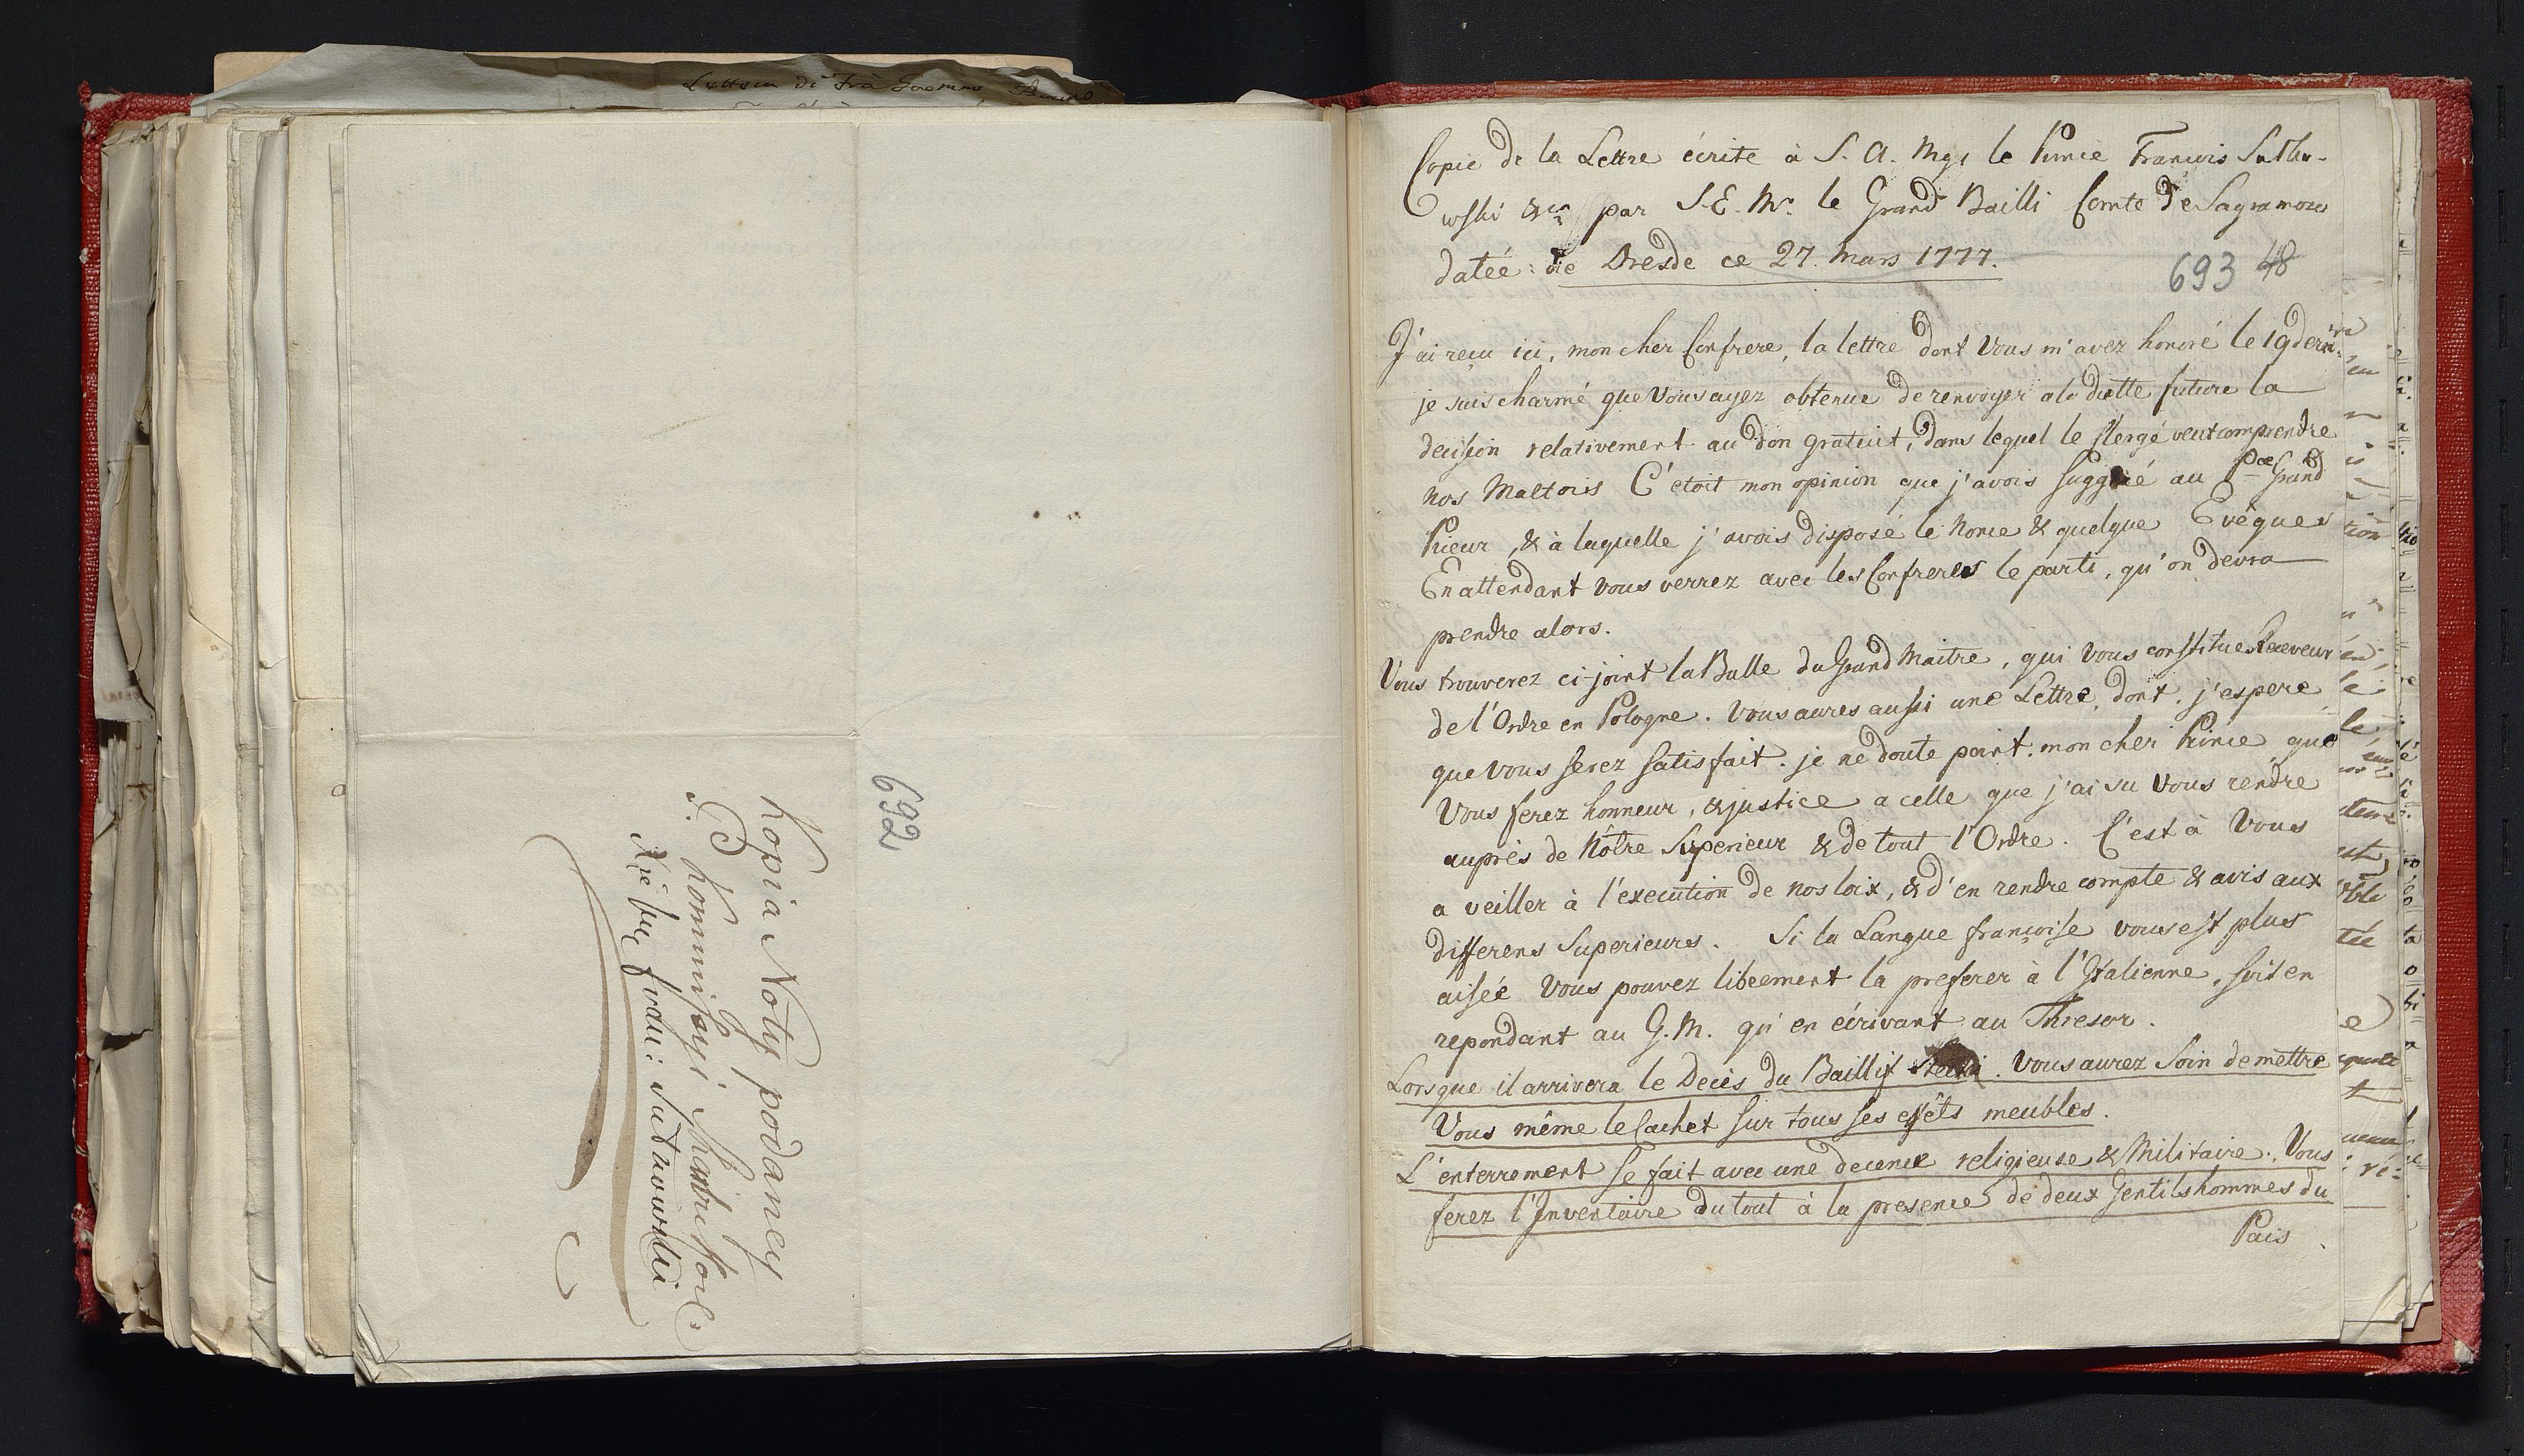 Lettera di Frà Gaetano
692
Kopia Noty podaney
Kommissyi Skarbu Kor:
Xcia fran: Sułkowski
Copie de la Lettre écrite à S. A. Mgr le Prince François Sulko-
wski &cr par S.E. Mr. le Grand Bailli Comte de Sagramoso
datée de Dresde ce 27. Mars 1777.
693 48
J'ai reçu ici, mon cher Confrere, la lettre dont Vous m'avez honoré le 19 dern.re
je suis charmé que Vous ayez obtenue de renvoyer a la diette future la
decision relativement au don gratuit, dans lequel le Clergé veut comprendre
nos Maltois C'etoit mon opinion que j'avois suggeré au Pce Grand
Prieur, & à laquelle j'avois disposé le Nonce & quelque Evêques
En attendant vous verrez avec les Confreres le parti, qu'on devra
prendre alors.
Vous trouverez ci-joint la Bulle du Grand Maitre, qui Vous constitue Receveur
de l'Ordre en Pologne. Vous aures aussi une Lettre, dont j'espere
que Vous serez satisfait. je ne doute point mon cher Prince que
Vous ferez honneur, & justice a celle que j'ai su Vous rendre
auprés de Nôtre Superieur & de tout l'Ordre. C'est à Vous
a veiller à l'execution de nos loix, & d'en rendre compte & avis aux
differens Superieurs. Si la Langue françoise vous est plus
aisée Vous pouvez libeement la preferer à l'Italienne, soit en
repondant au G.M. qu'en écrivant au Thresor.
Lorsque il arrivera le Decés du Baillif . Vous aurez Soin de mettre
Vous même le Cachet sur tous ses effêts meubles.
L'enterrement se fait avec une decence religieuse & Militaire. Vous
ferez l'Inventaire du tout à la presence de deux Gentilshommes du
Païs